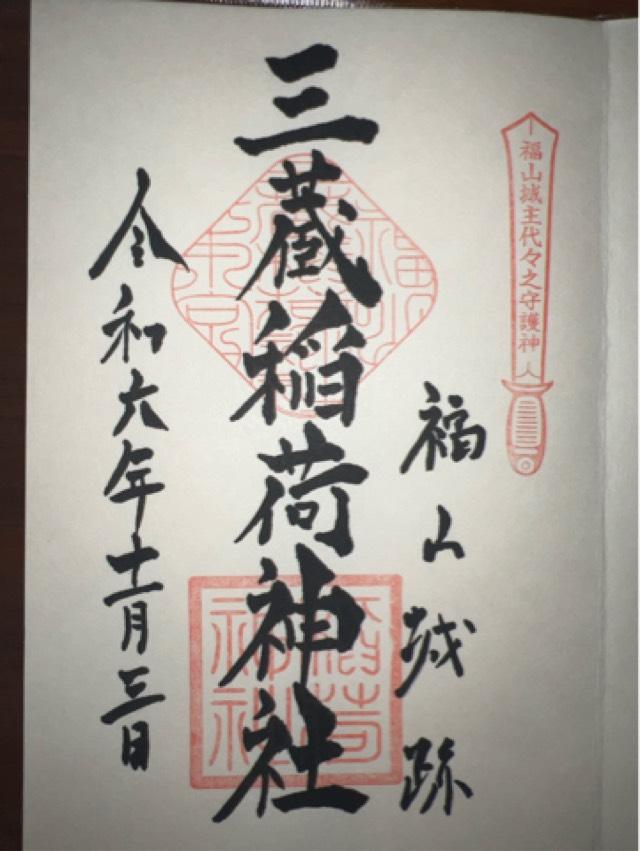 福山城主代々之守護神
福山城跡
三蔵稲荷神社
令和六年十一月三日
稲荷
神社